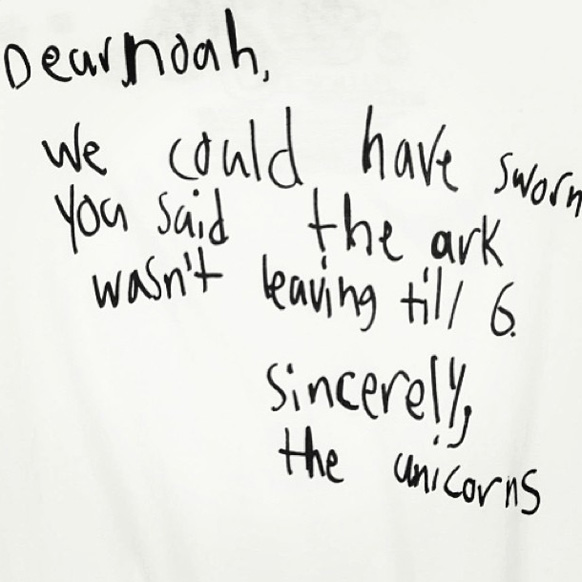 Dear noah,
we could have sworn
you said the ark
wasn't leaving till 6.
sincerely,
the unicorns